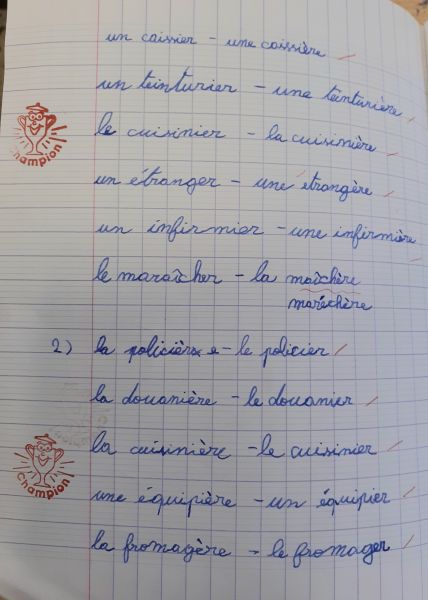 un caissier - une caissière
un teinturier - une teinturière
le cuisinier - la cuisinière
champion
un étranger - une étrangère
un infirmier - une infirmière
le maraîcher - la maîchère
maréchère
2) la policière - le policier
la douanière - le douanier
la cuisinière - le cuisinier
champion
une équipière - un équipier
la fromagère - le fromager